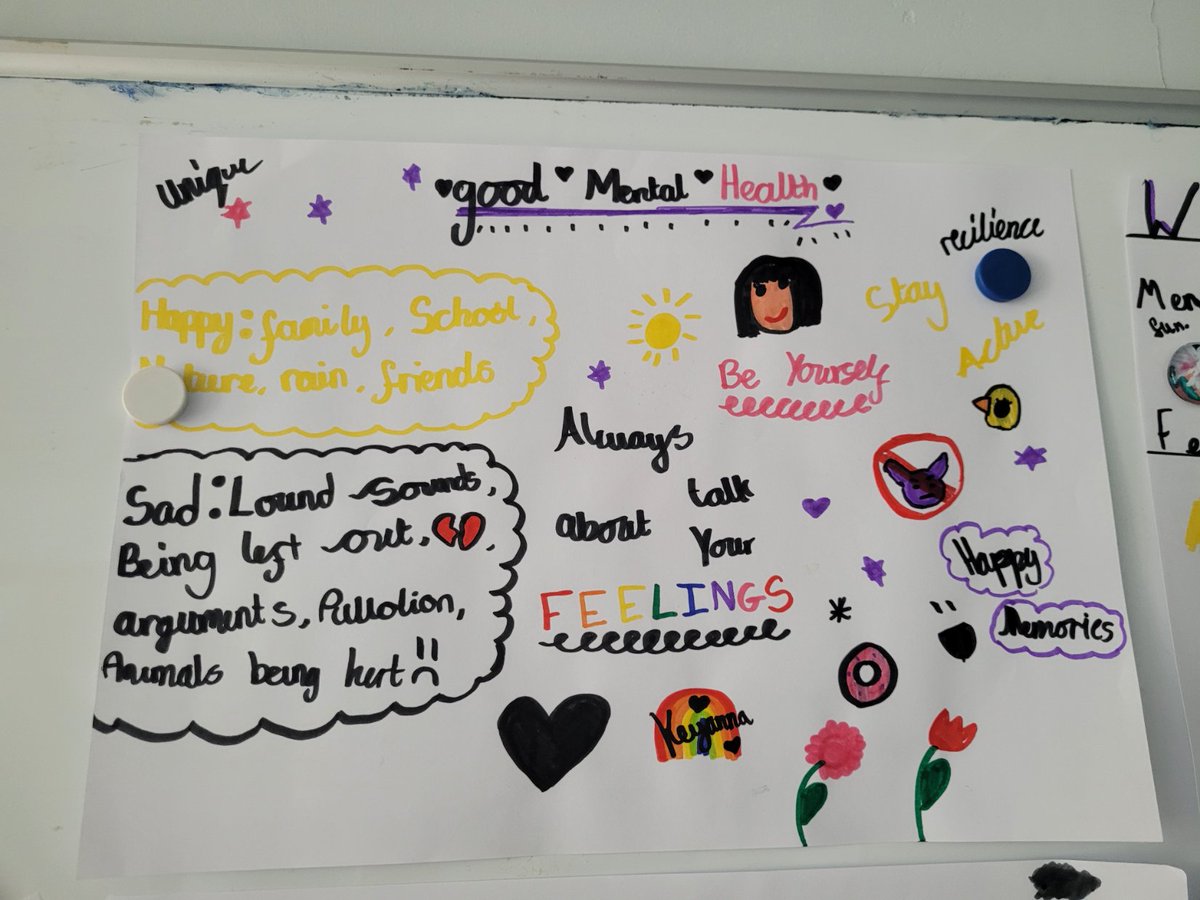 unique
good Mental Health
recilience
Happy: family, School,
Nature, rain, friends
Stay
Active
Be Yourself
Sad: Lound sounds,
Being left out,
arguments, Pullotion,
Animals being hurt
Always
talk
about
Your
FEELINGS
Happy
Memories
Keyanna
W
Men
fun.
Fe